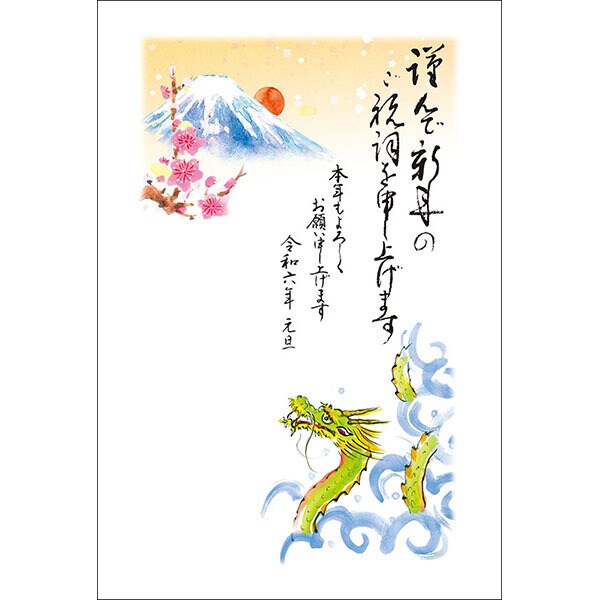 謹んで新年の
ご祝詞を申し上げます
本年もよろしく
お願い申し上げます
令和六年 元旦